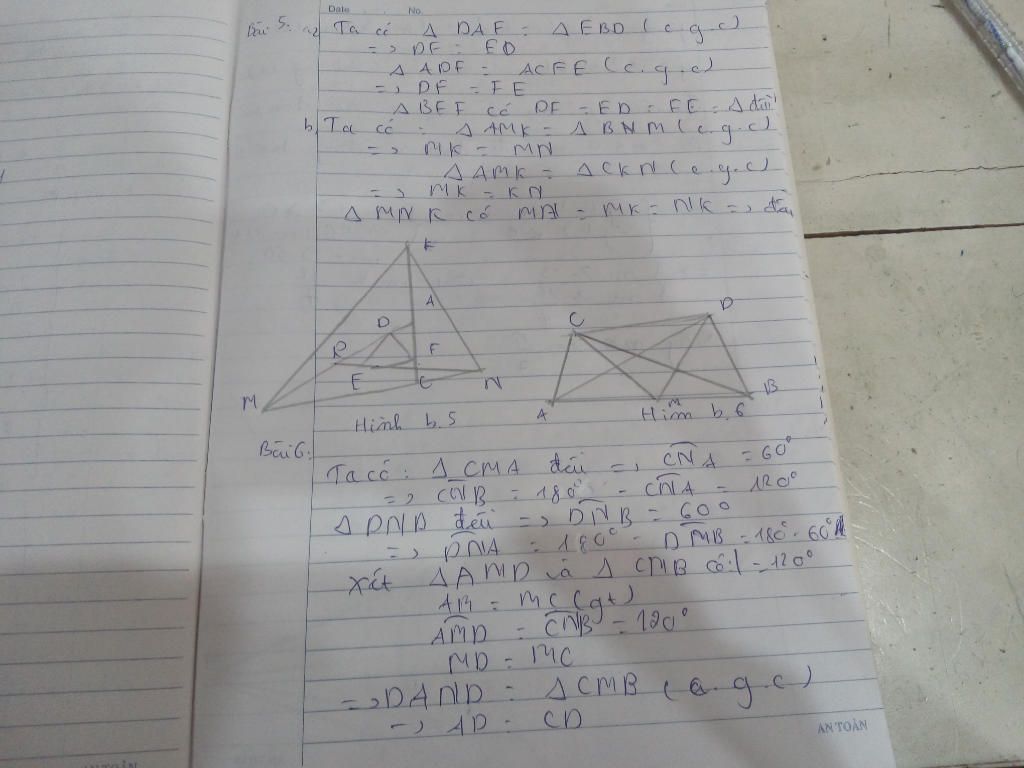 Date No.
Bài 5. a, Ta có Δ DAF = Δ EBD (c.g.c)
=> DF = ED
Δ ADF = ΔCFE (c.g.c)
=> DF = FE
Δ BEF có DF = ED = FE = Δ đều
b, Ta có = Δ AMK = Δ BNM (c.g.c)
=> MK = MN
Δ AMK = ΔCKN (c.g.c)
=> MK = KN
Δ MNK có MN = MK = NK => đều
K
A
D
B F
E C N
M
Hình b.5
C D
A M B
Hình b.6
Bài 6:
Ta có: Δ CMA đều => CNA = 60°
=> CNB = 180° - CNA = 120°
Δ DNB đều => DNB = 600
=> DNA = 180° - DMB = 180° - 60°
Xét Δ AMD và Δ CMB có: = 120°
AM = MC (gt)
AMD = CNB = 120°
MD = MC
=> DAND = ΔCMB (c.g.c)
=> AD = CD
AN TOÀN
AN TOÀN